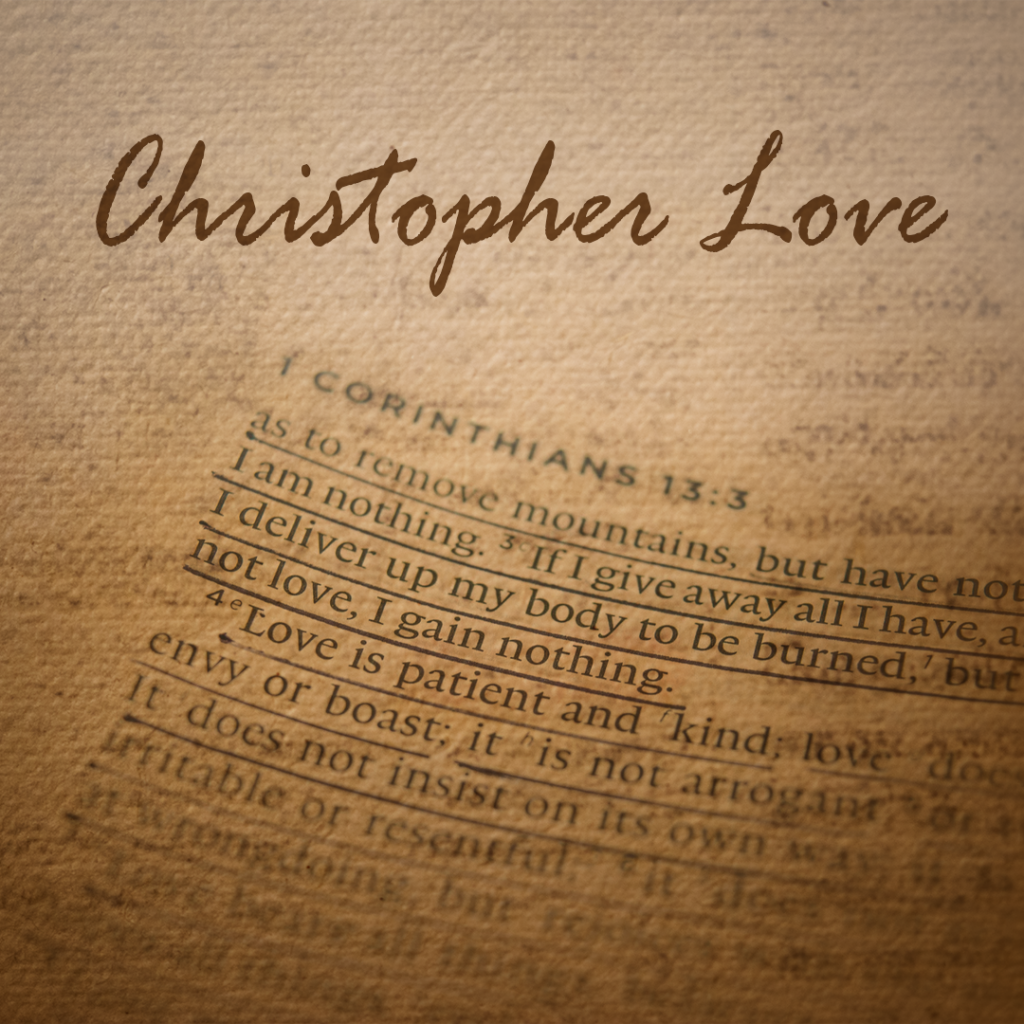 Christopher Love
1 CORINTHIANS 13:3
as to remove mountains, but have not
I am nothing. 3 If I give away all I have, a
I deliver up my body to be burned, but
not love, I gain nothing.
4 e Love is patient and kind; love does
envy or boast; it h is not arrogant
It does not insist on its own way
irritable or resentful
wrongdoing but